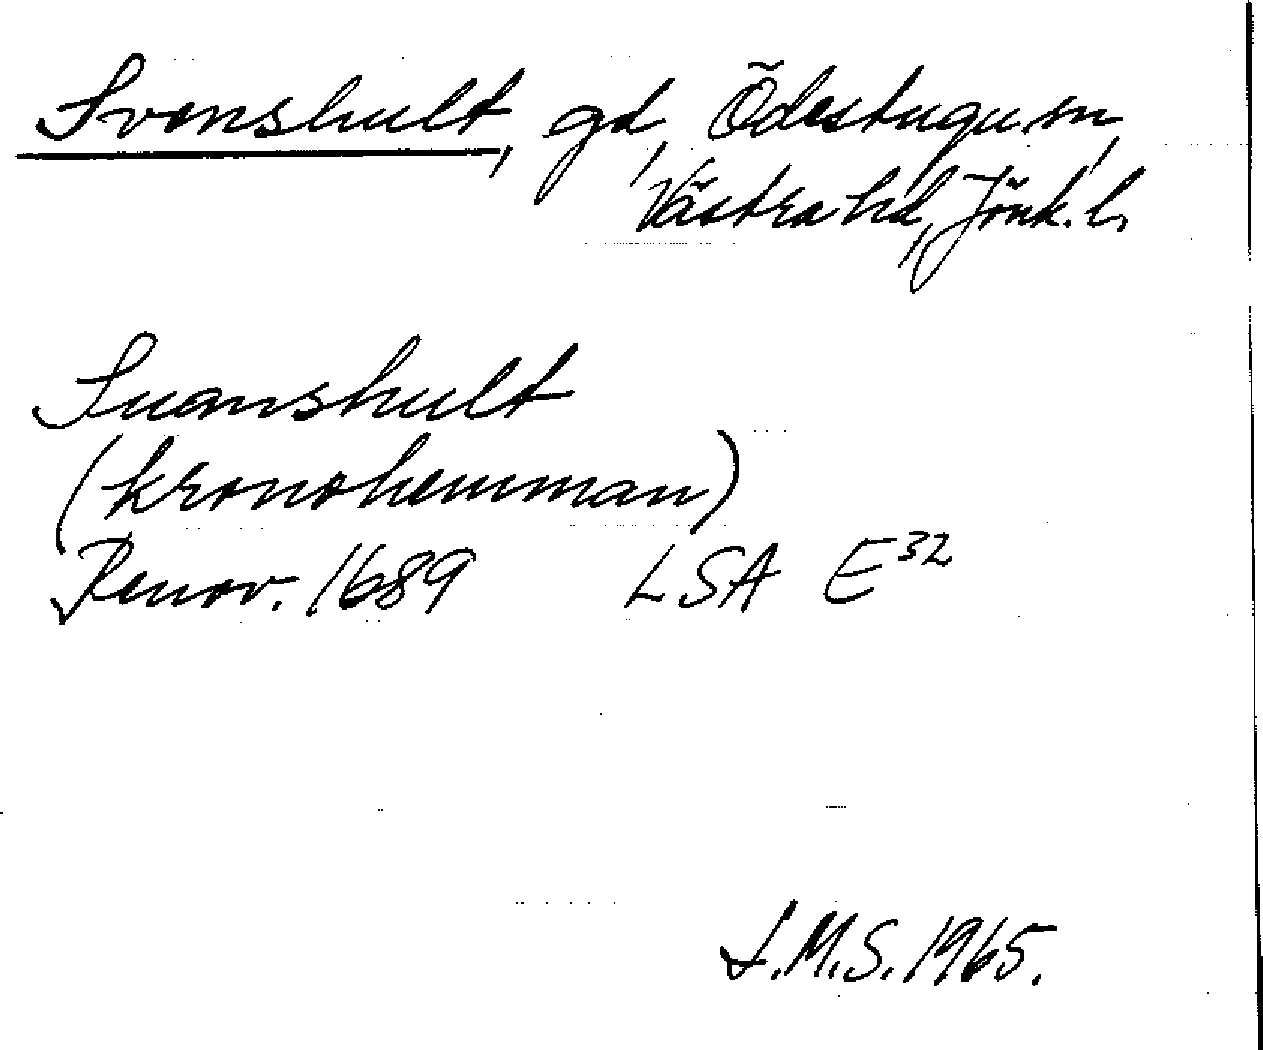 Svenshult, gd, Ödestugu sn,
Västra hd, Jönk. l.
Suanshult
(kronohemman)
Renov. 1689 LSA E32
I.M.S. 1965.